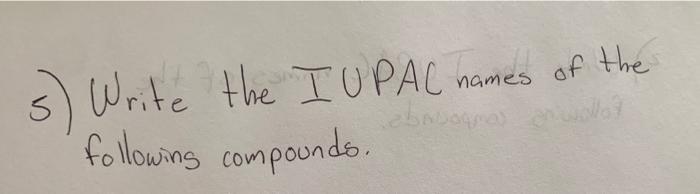 5) Write the IUPAC names of the
following compounds.